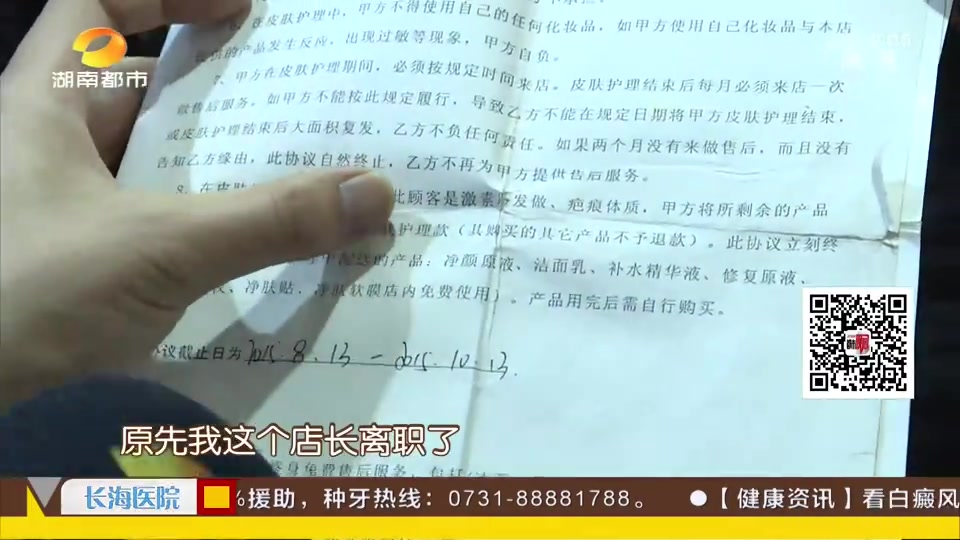 在皮肤护理中，甲方不得使用自己的任何化妆品，如甲方使用自己化妆品与本店
的产品发生反应，出现过敏等现象，甲方自负。
湖南都市
7、甲方在皮肤护理期间，必须按规定时间来店。皮肤护理结束后每月必须来店一次
做售后服务。如甲方不能按此规定履行，导致乙方不能在规定日期将甲方皮肤护理结束，
或皮肤护理结束后大面积复发，乙方不负任何责任。如果两个月没有来做售后，而且没有
告知乙方缘由，此协议自然终止，乙方不再为甲方提供售后服务。
8、在皮肤 此顾客是激素 发做、疤痕体质，甲方将所剩余的产品
护理款（其购买的其它产品不予退款）。此协议立刻终
的产品：净颜原液、洁面乳、补水精华液、修复原液、
、净肤贴，净肤软膜店内免费使用）。产品用完后需自行购买。
议截止日为2015.8.13－2015.10.13.
原先我这个店长离职了
终身免费售后服务，
长海医院
%援助，种牙热线：0731-88881788。 ●【健康资讯】看白癜风